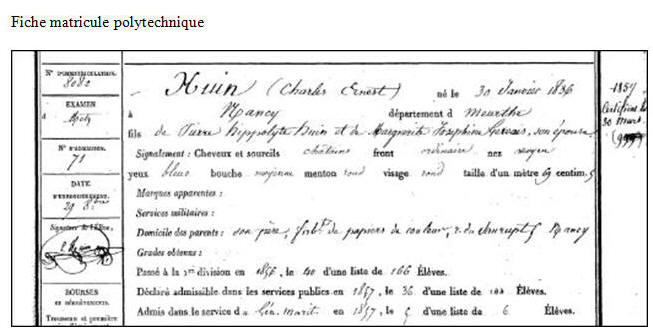 Fiche matricule polytechnique
N° D'IMMATRICULATION.
8082
EXAMEN
à Metz
N° D'ADMISSION.
71
DATE
D'ENREGISTREMENT.
29 8bre
Signature de l'Élève,
BOURSES
ET DÉGRÈVEMENTS.
Trousseau et première
Huin (Charles Ernest) né le 30 Janvier 1836
à Nancy département d Meurthe
fils de Pierre hippolyte huin et de Marguerite Josephine Gervais, son épouse
Signalement : Cheveux et sourcils châtains front ordinaire nez moyen
yeux bleus bouche moyenne menton rond visage rond taille d'un mètre 69 centim. 5
Marques apparentes :
Services militaires :
Domicile des parents : son père, fabt de papiers de couleur, r. du Nancy
Grades obtenus :
Passé à la 1re division en 1856, le 40 d'une liste de 166 Élèves.
Déclaré admissible dans les services publics en 1857, le 36 d'une liste de Élèves.
Admis dans le service d u Gén. marit. en 1857, le 5 d'une liste de 6 Élèves.
1857
Certificat
30 mars